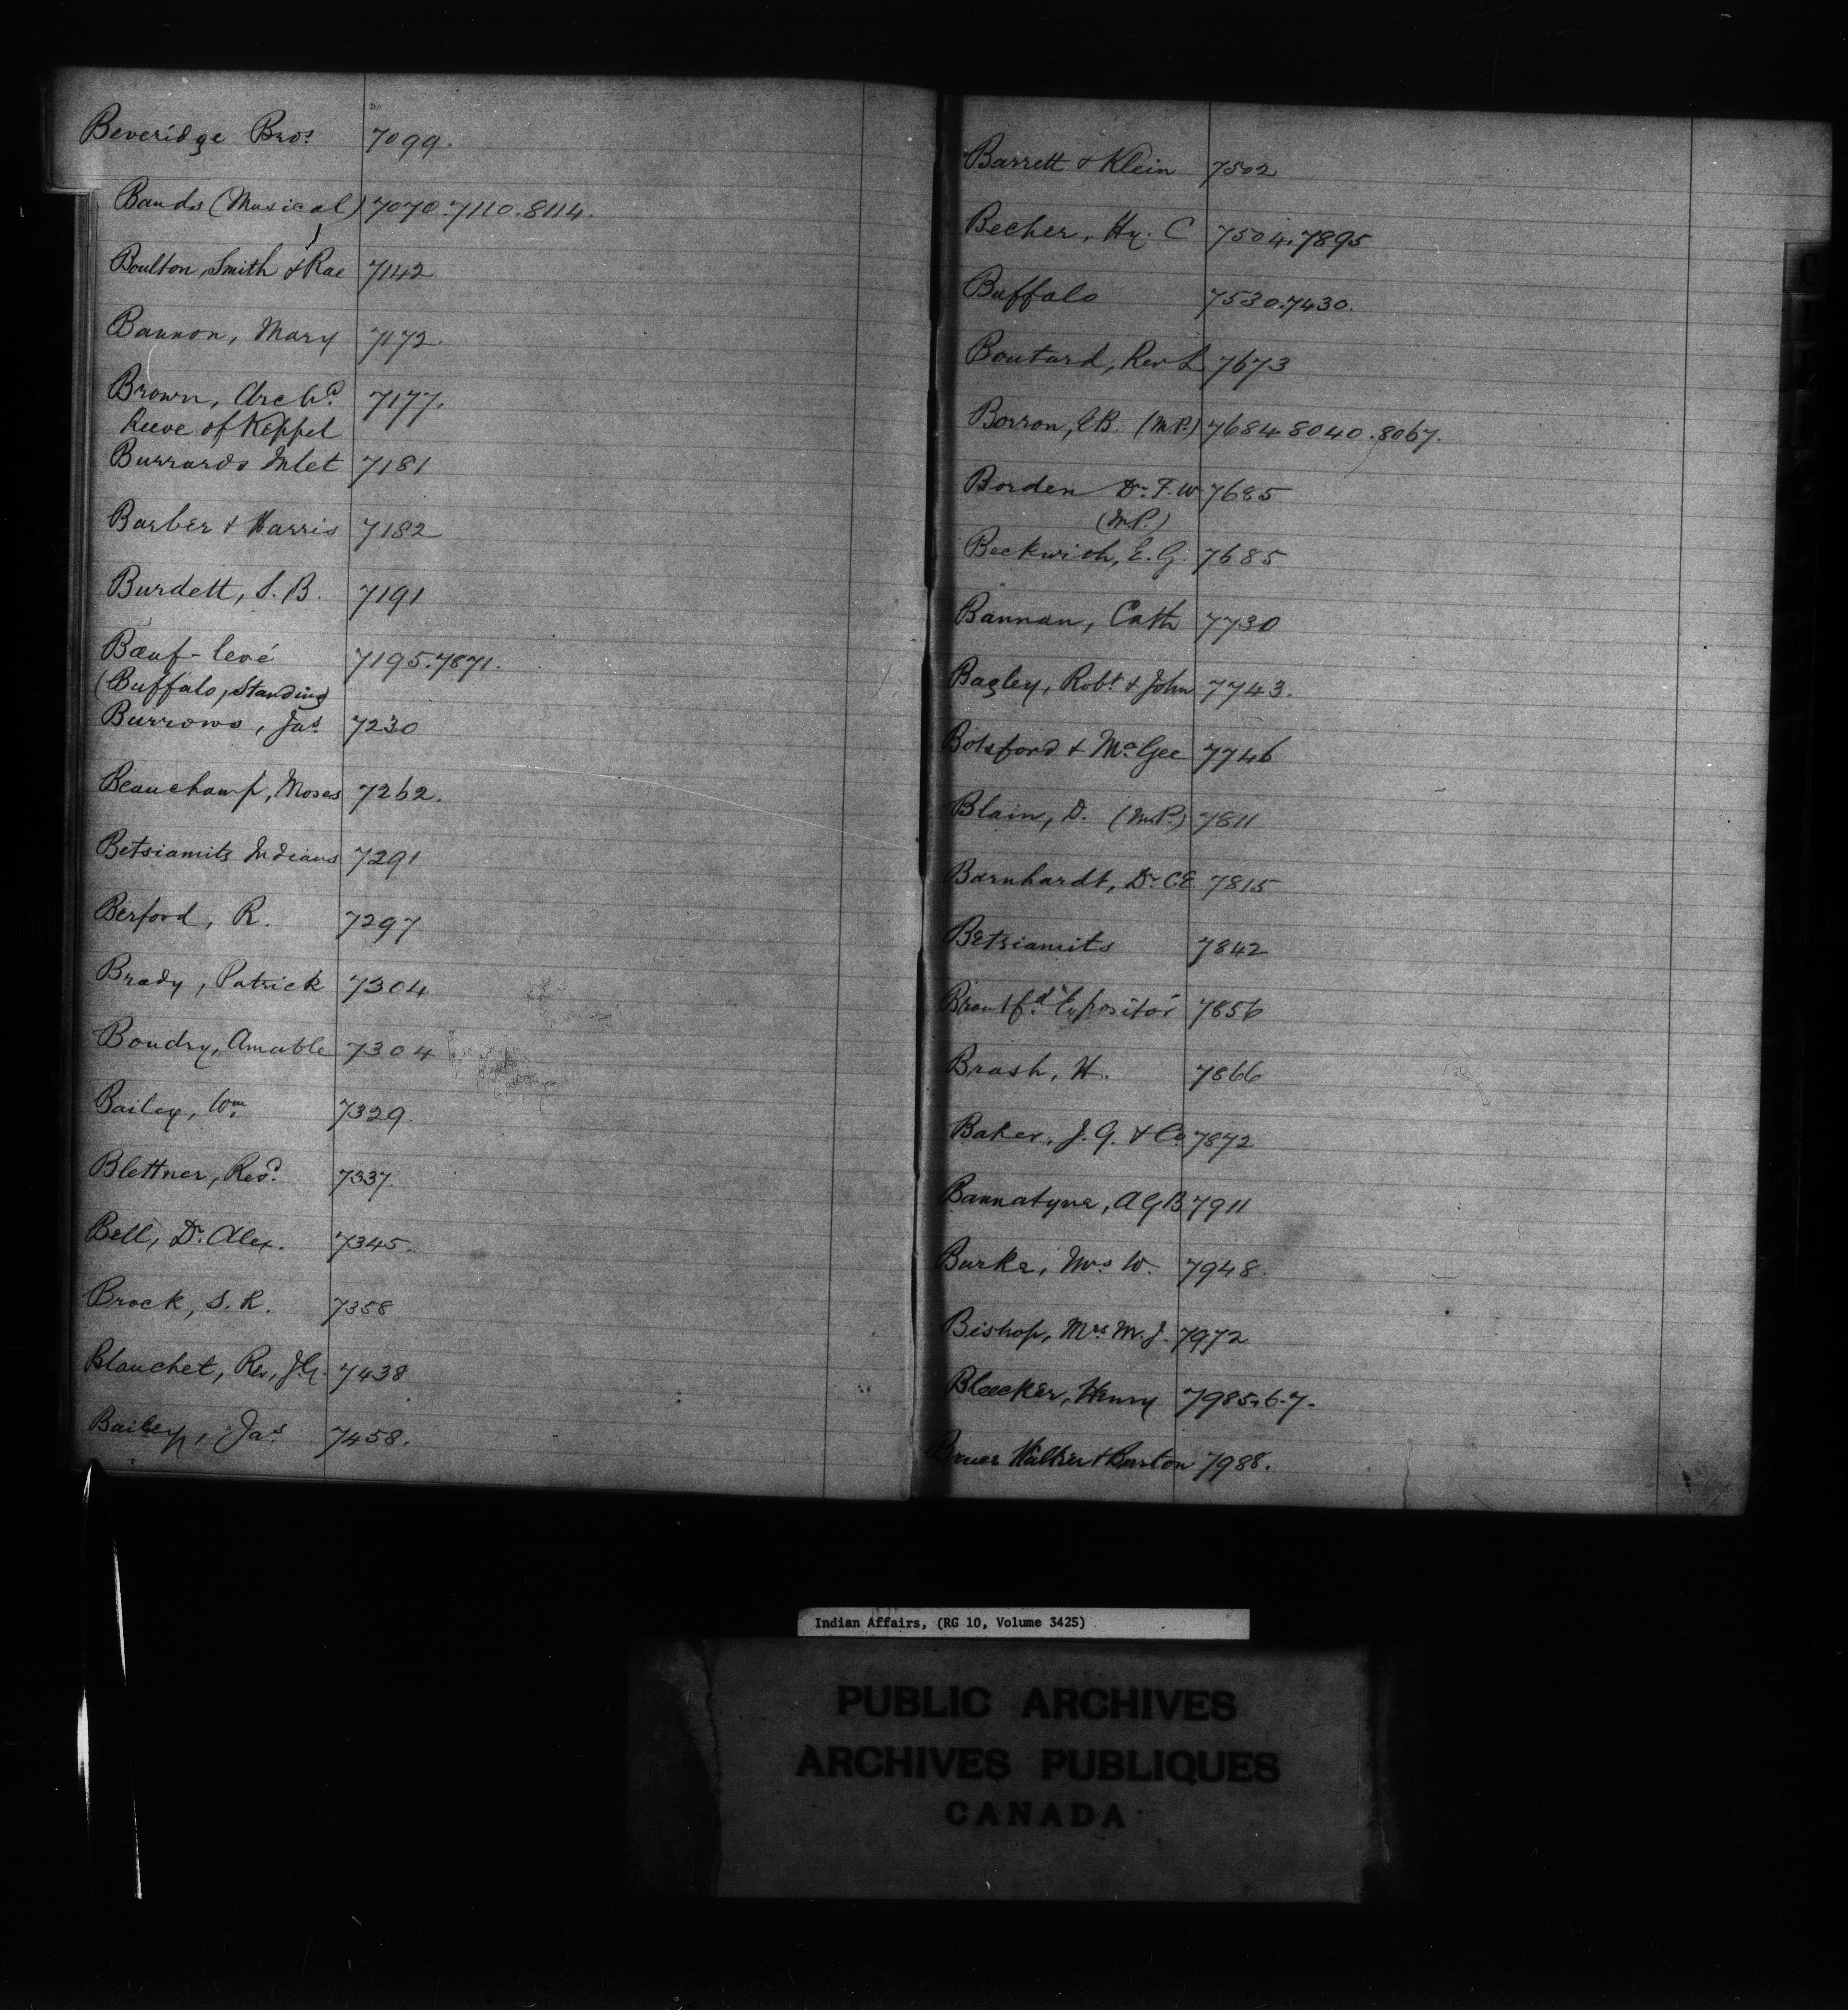 Beveridge Bros. 7099.
Bands (Musical) 7070.7110.8114.
Boulton, Smith & Rae 7142
Bannon, Mary 7172.
Brown, Archd. 7177.
Reeve of Keppel
Burrards Inlet 7181
Barber & Harris 7182
Burdett, S. B. 7191
Bœuf-levé 7195.7871.
(Buffalo, Standing
Burrows, Jas. 7230
Beauchamp, Moses 7262.
Betsiamits Indians 7291
Berford, R. 7297
Brady, Patrick 7304
Boudry, Amable 7304
Bailey, Wm. 7329.
Blettner, Revd. 7337.
Bell, Dr. Alex. 7345.
Brock, S. R. 7358
Blanchet, Rev, J.G. 7438
Bailey, Jas. 7458.
Barrett & Klein 7502
Becher, Hy. C 7504.7895
Buffalo 7530.7430.
Boutard, Rev L 7673
Borron, E.B. (M.P.) 7684 8040.8067.
Borden Dr. F. W 7685
(M.P.)
Beckwith, E. G. 7685
Bannan, Cath 7730
Bagley, Robt. & John 7743.
Botsford & McGee 7746
Blain, D. (M.P.) 7811
Barnhardt, Dr C.E. 7815
Betsiamits 7842
Brantfd. "Expositor 7856
Brash, H. 7866
Baker, J. G. & Co 7872
Bannatyne, A G B 7911
Burke, Mrs W. 7948.
Bishop, Mrs M. J. 7972
Bleecker, Henry 7985.6.7.
Bruce Walker & Burton 7988.
Indian Affairs, (RG 10, Volume 3425)
PUBLIC ARCHIVES
ARCHIVES PUBLIQUES
CANADA